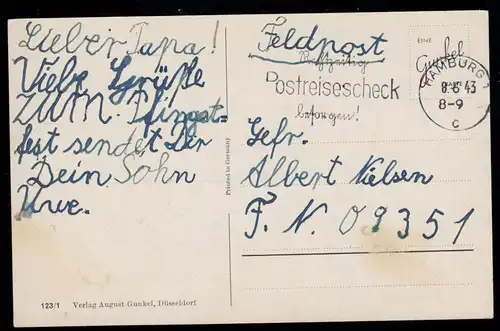 Lieber Papa!
Viele Grüße
zum Pfingst-
fest sendet Dir
Dein Sohn
Uwe.
123/1 Verlag August Gunkel, Düsseldorf
Printed in Germany
Feldpost
Rechtzeitig
Postreisescheck
besorgen!
EINE
Gunkel
KARTE
HAMBURG 1
8.6.43
8-9
c
Gefr.
Albert Nielsen
F. N. 09351